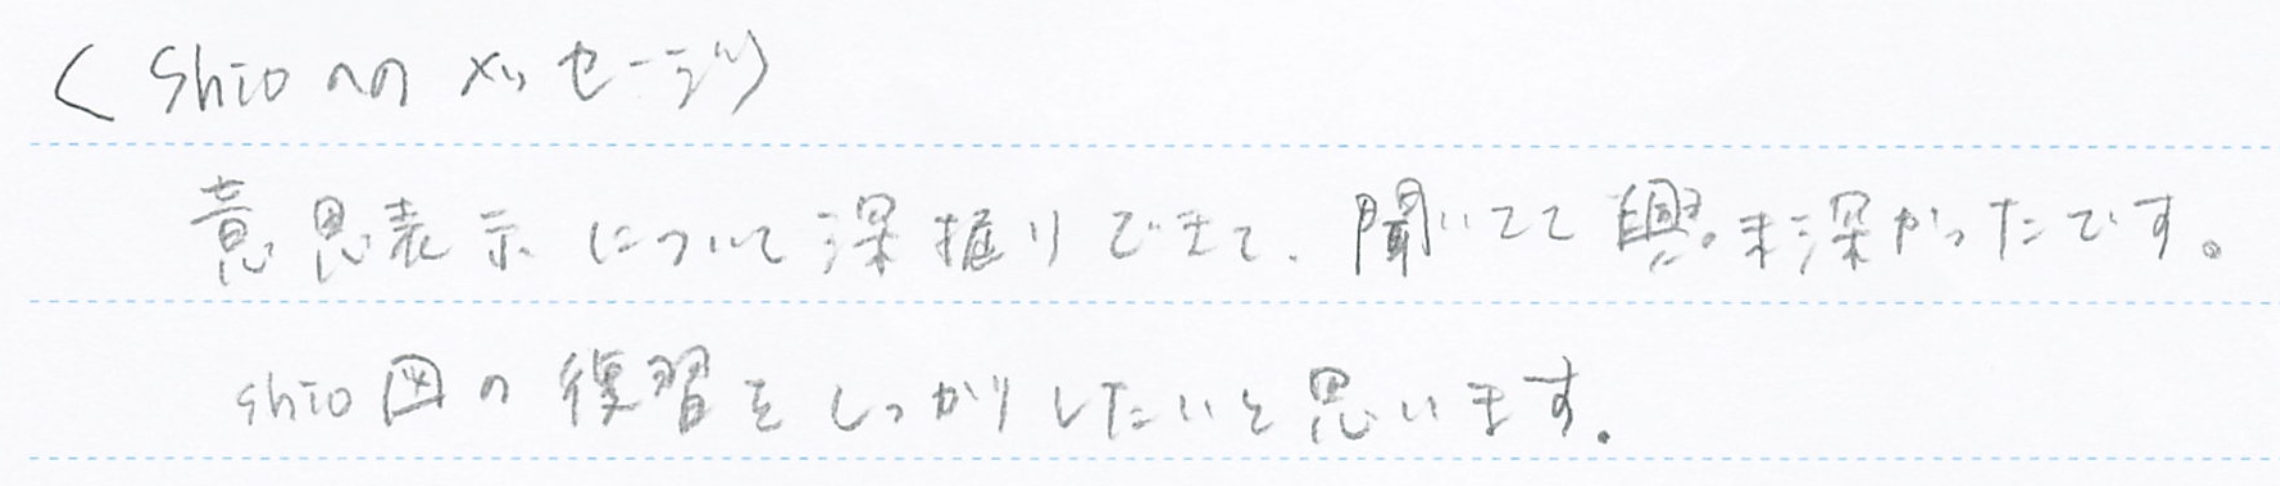 〈shioへのメッセージ〉
意思表示について深掘りできて、聞いてて興味深かったです。
shio図の復習をしっかりしたいと思います。